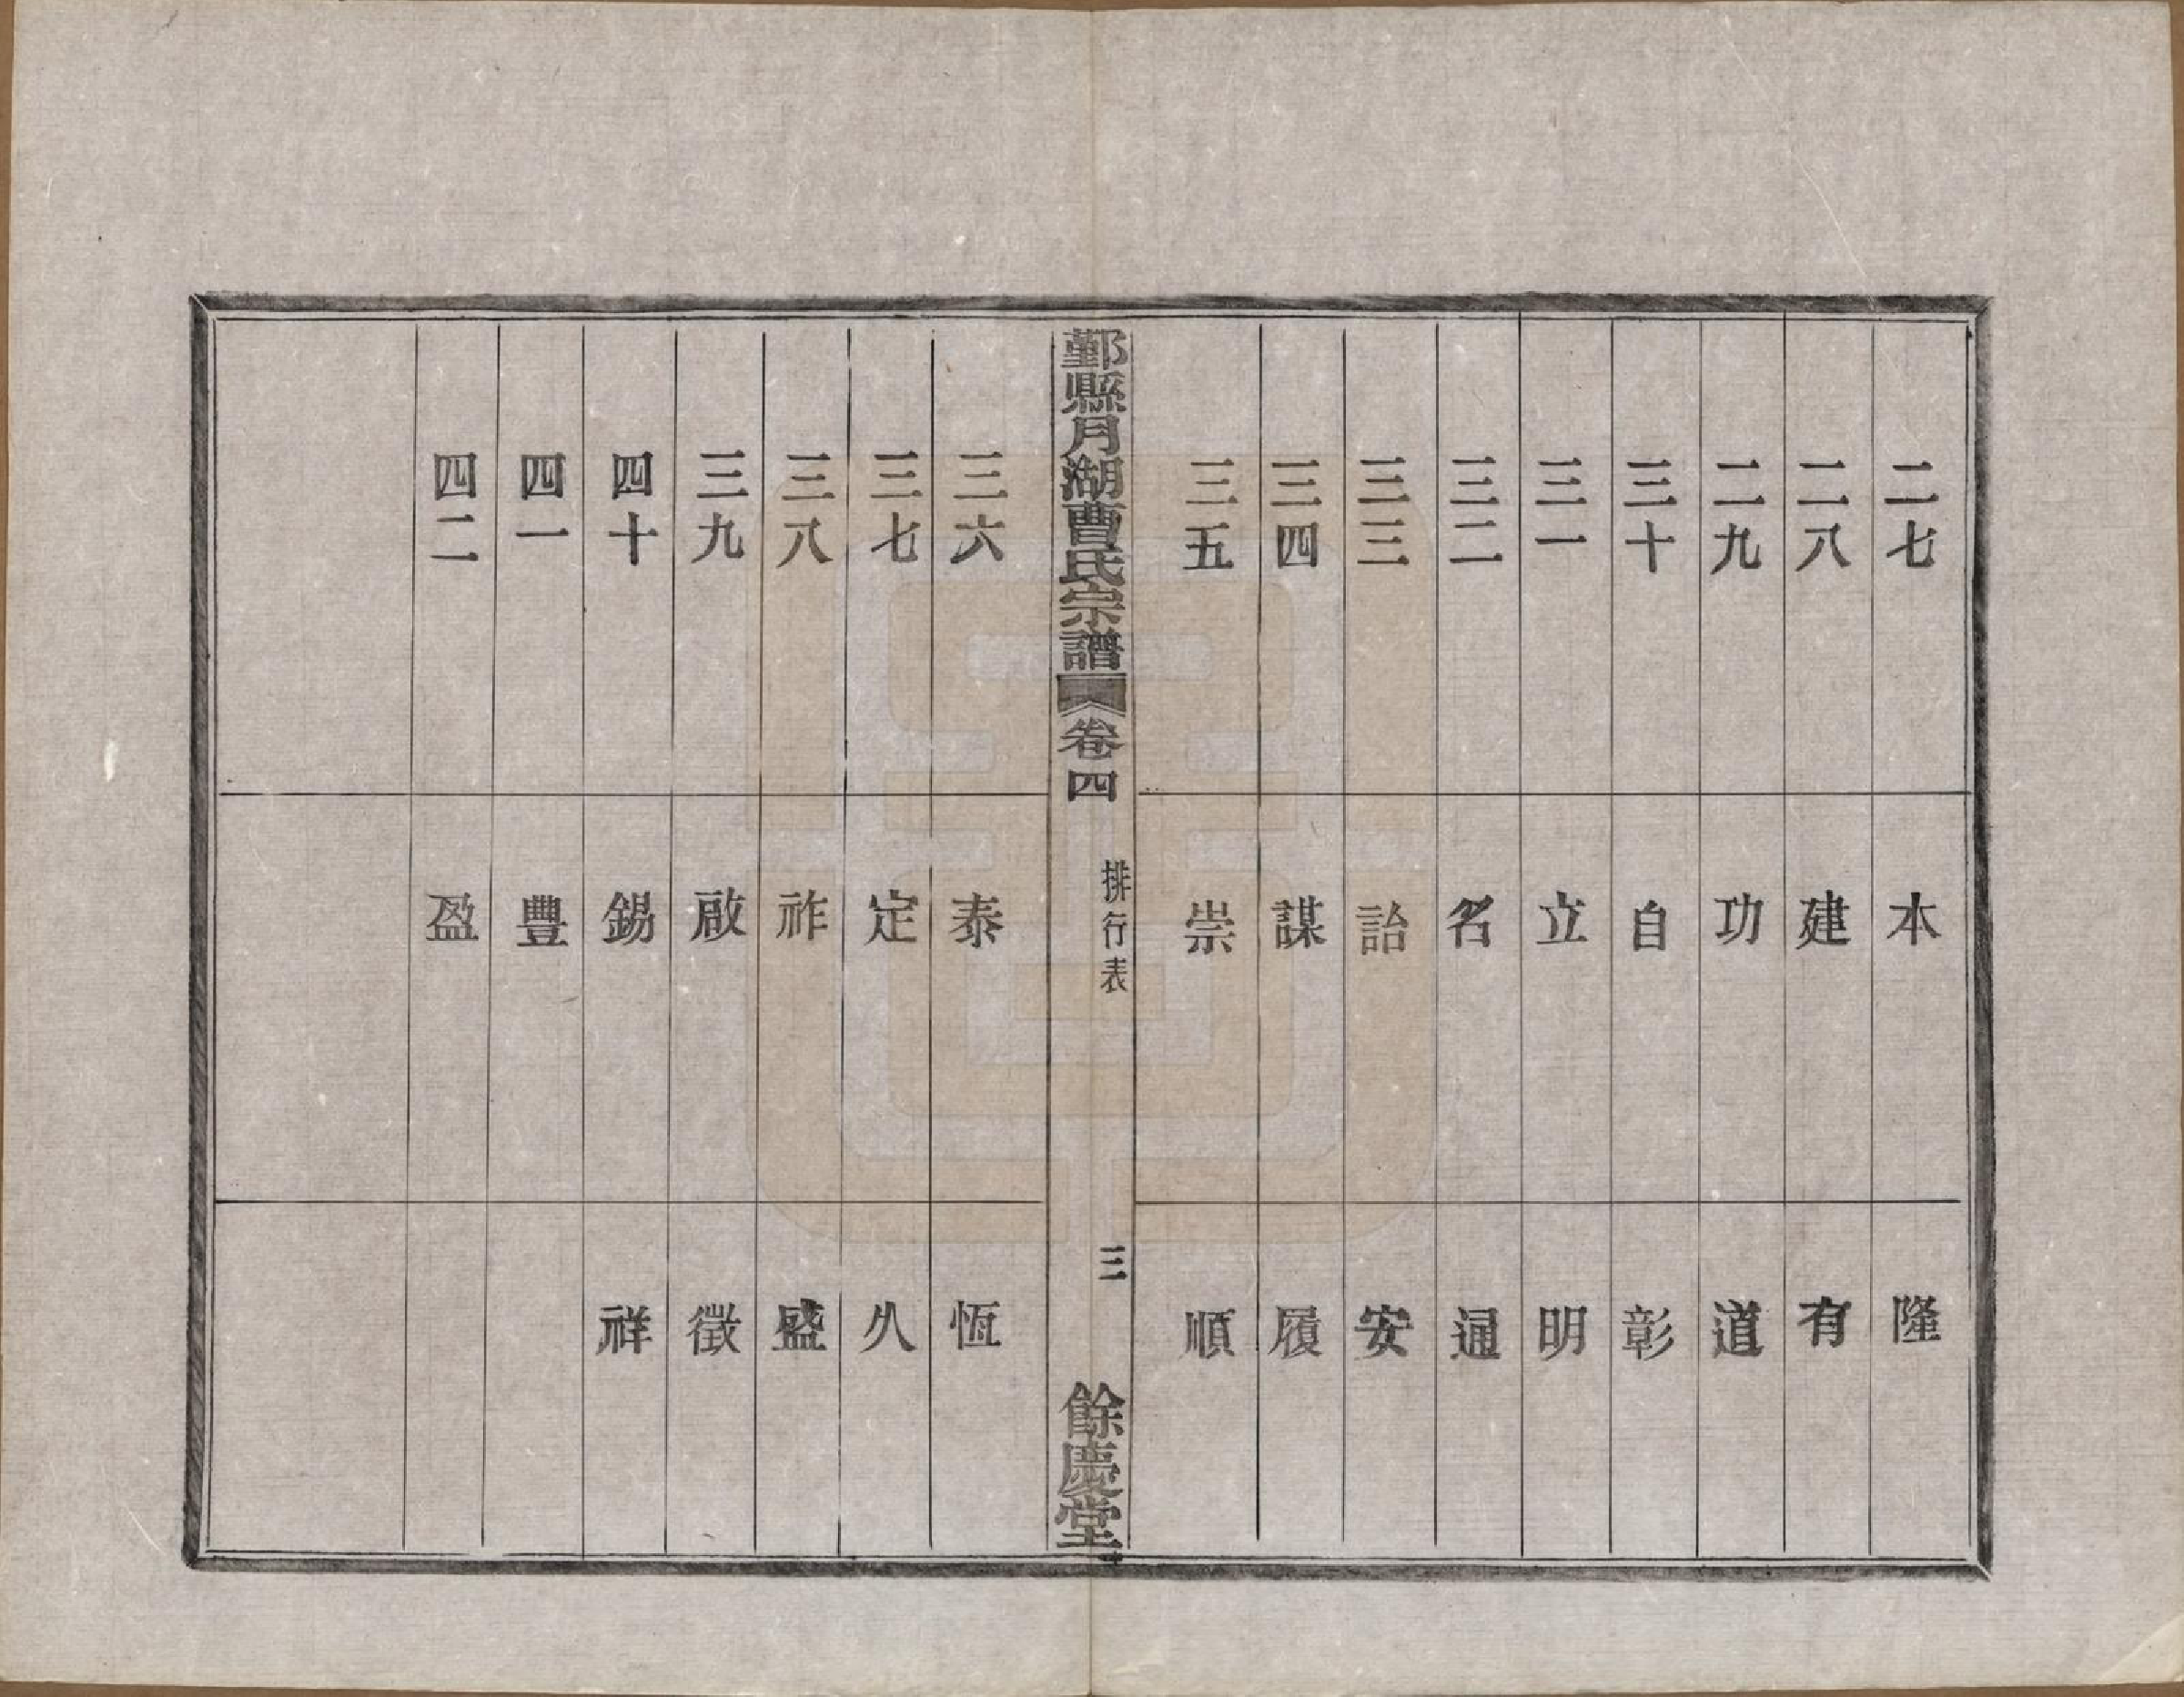 二七 本 隆
二八 建 有
二九 功 道
三十 自 彰
三一 立 明
三二 名 通
三三 詒 安
三四 謀 履
三五 崇 順
鄞縣月湖曹氏宗譜 卷四 排行表 三 餘慶堂
三六 泰 恆
三七 定 久
三八 祚 盛
三九 啟 徵
四十 錫 祥
四一 豐
四二 盈